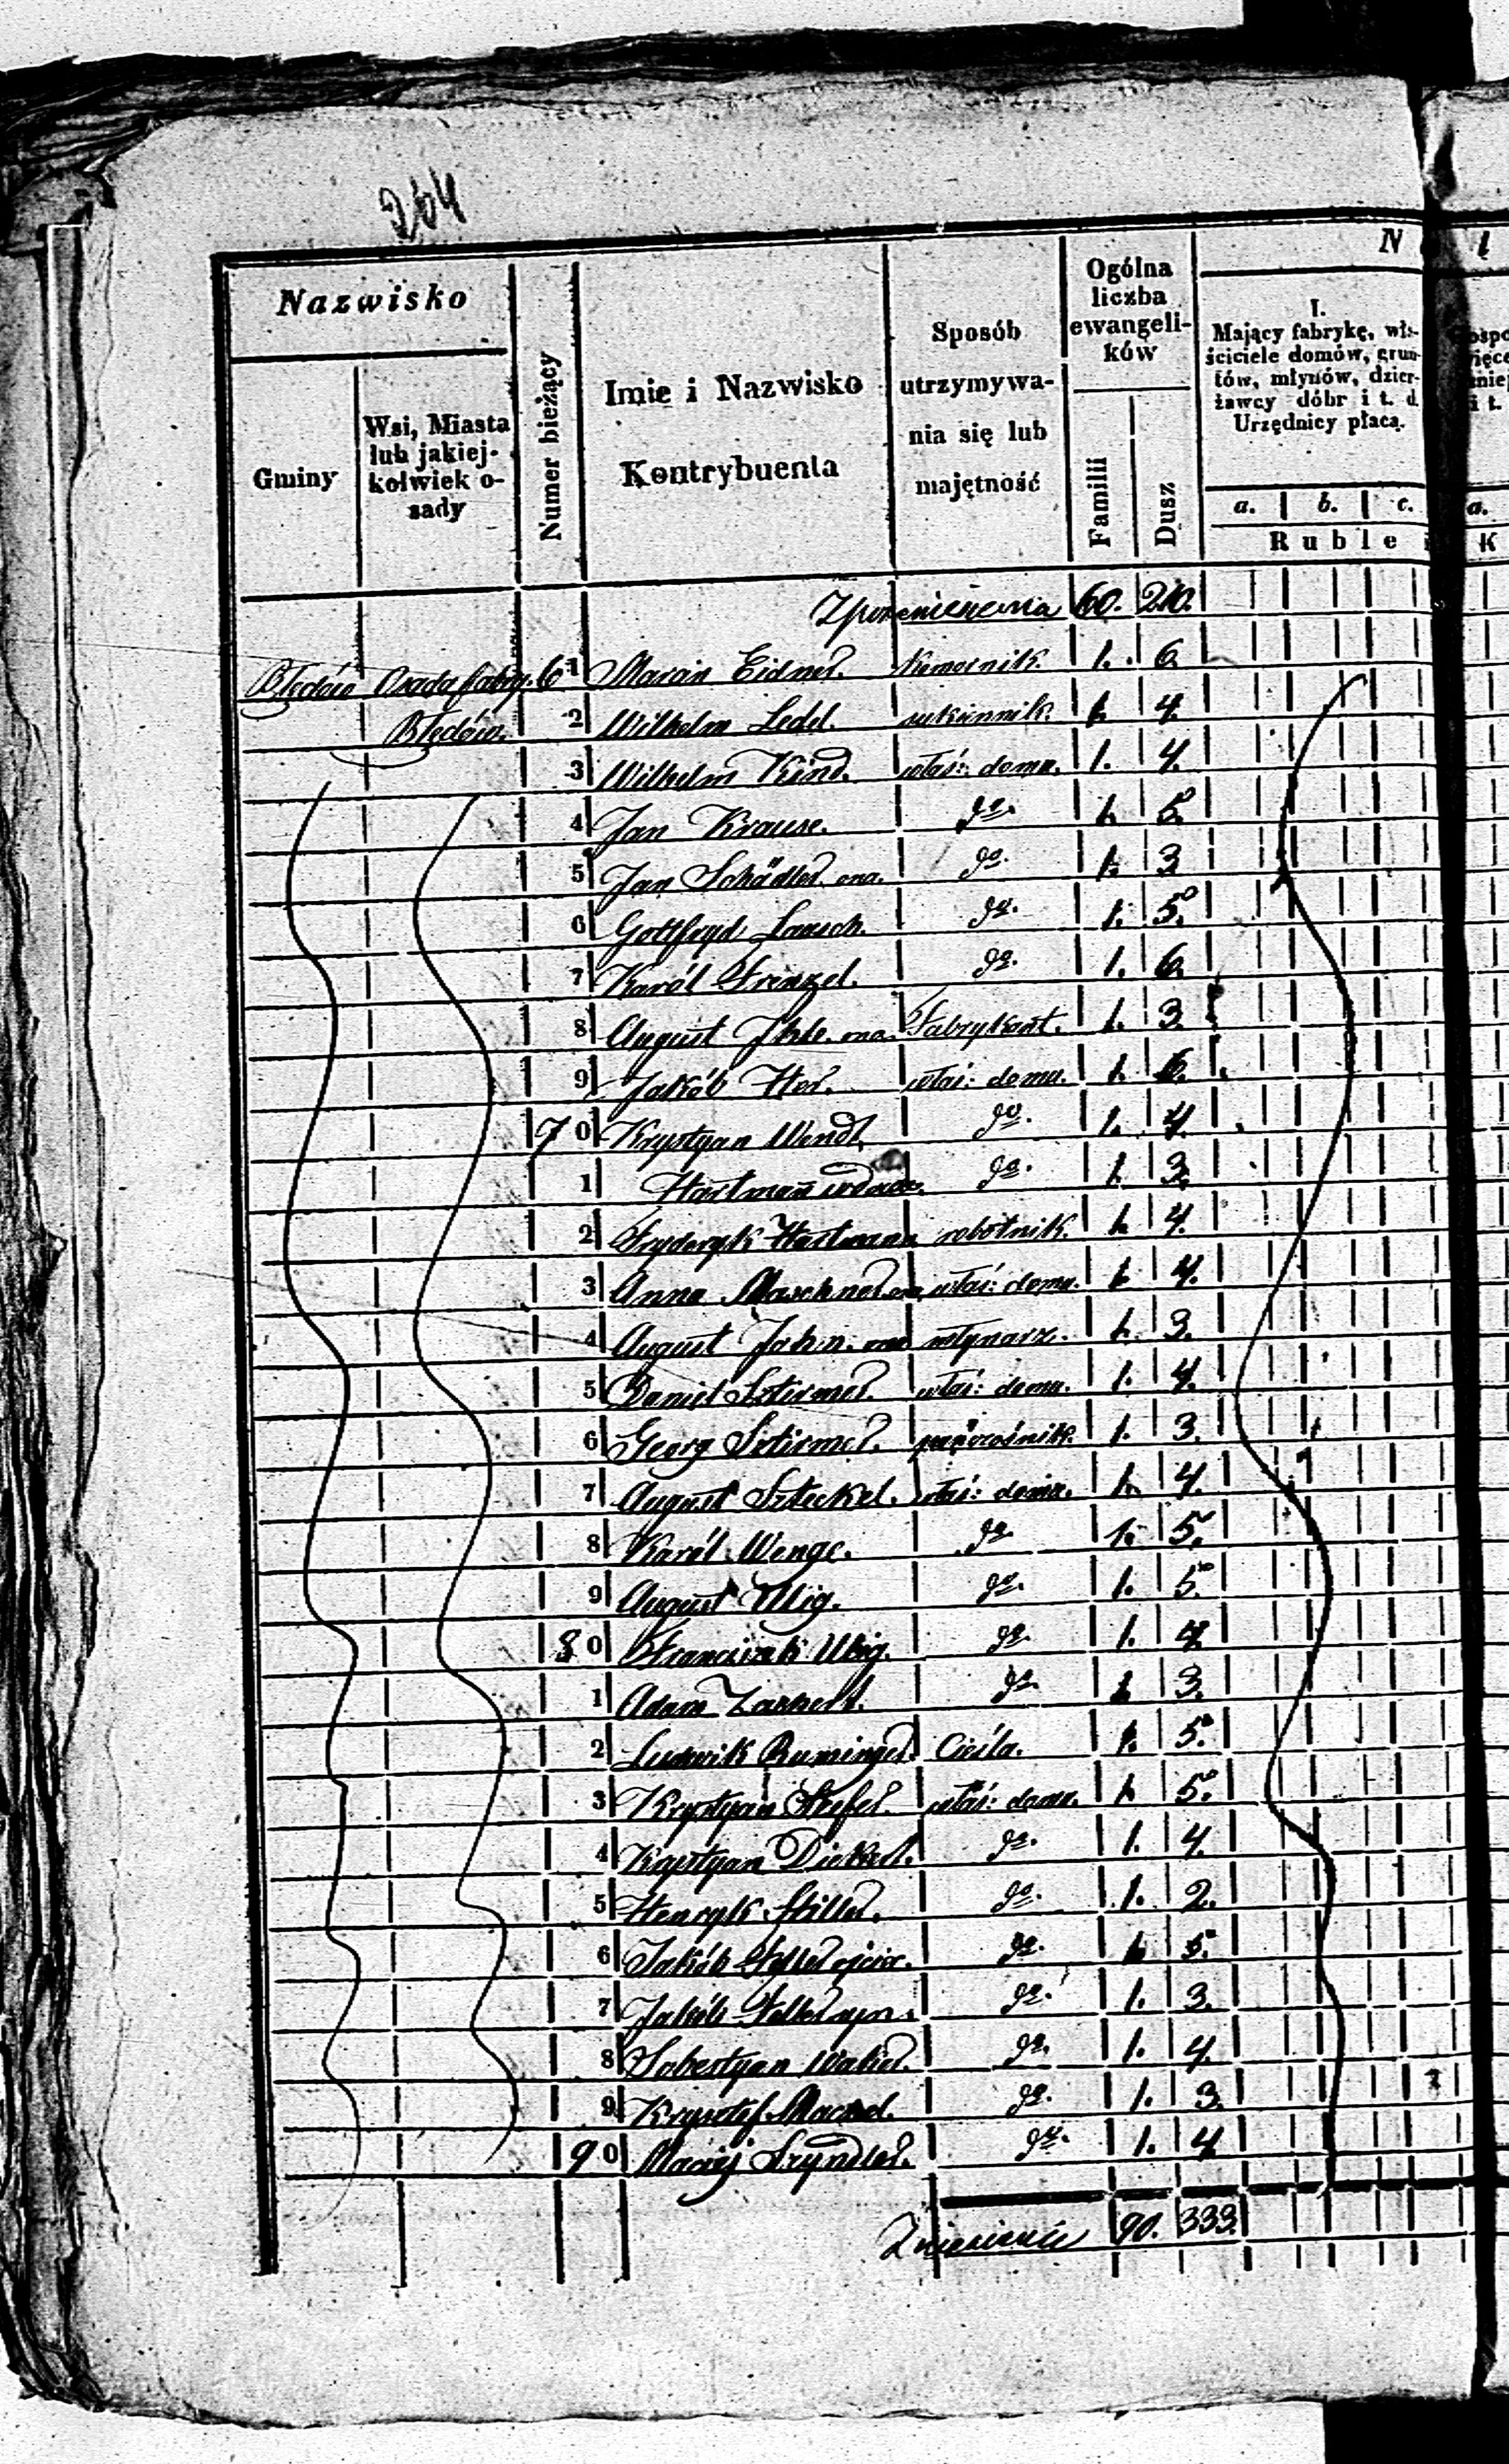 264
Nazwisko
Gminy
Wsi, Miasta
lub jakiej-
kolwiek o-
sady
Numer bieżący
Imie i Nazwisko
Kontrybuenta
Sposób
utrzymywa-
nia się lub
majętność
Ogólna
liczba
ewangeli-
ków
Familii
Dusz
N
I.
Mający fabrykę, wła-
ściciele domów, grun-
tów, młynów, dzier-
żawcy dóbr i t. d.
Urzędnicy płacą.
a. b. c. a.
Ruble i K
Z przeniesienia 60. 210.
Błędów Osada fabry. 61 Marcin Eidner. Komornik. 1. 6
Błędów. 2 Wilhelm Ledel. sukiennik. 1. 4.
3 Wilhelm Kind. właś: domu. 1. 4.
4 Jan Krause. do. 1. 5.
5 Jan Schädler. do. 1. 3
6 Gottfryd Lausch. do. 1. 5.
7 Karól Frenzel. do. 1. 6.
8 August Fabrykant. 1. 3.
9 Jakób właś: domu. 1. 6.
70 Krystyan Wendt. do. 1. 4.
1 Hartman wdowa. do. 1. 3.
2 Fryderyk Hartman robotnik. 1. 4.
3 Anna Maschner właś: domu. 1. 4.
4 August Jahn. młynarz. 1. 3.
5 Daniel Sztirmer. właś: domu. 1. 4.
6 Georg Sztirmer. 1. 3.
7 August Szteckel. właś: domu. 1. 4.
8 Karól Wenge. do. 1. 5.
9 August Ulbig. do. 1. 5.
80 Franciszek Ulbig. do. 1. 4
1 Adam do. 1. 3.
2 Ludwik Cieśla. 1. 5.
3 Krystyan właś: domu. 1. 5.
4 Krystyan do. 1. 4.
5 Henryk Stiller. do. 1. 2.
6 Jakób ojciec. do. 1. 5.
7 Jakób syn. do. 1. 3.
8 Sebestyan Walter. do. 1. 4.
9 Krysztof do. 1. 3.
90 Maciej Szyndler. do. 1. 4
Zniesienie 90. 333.